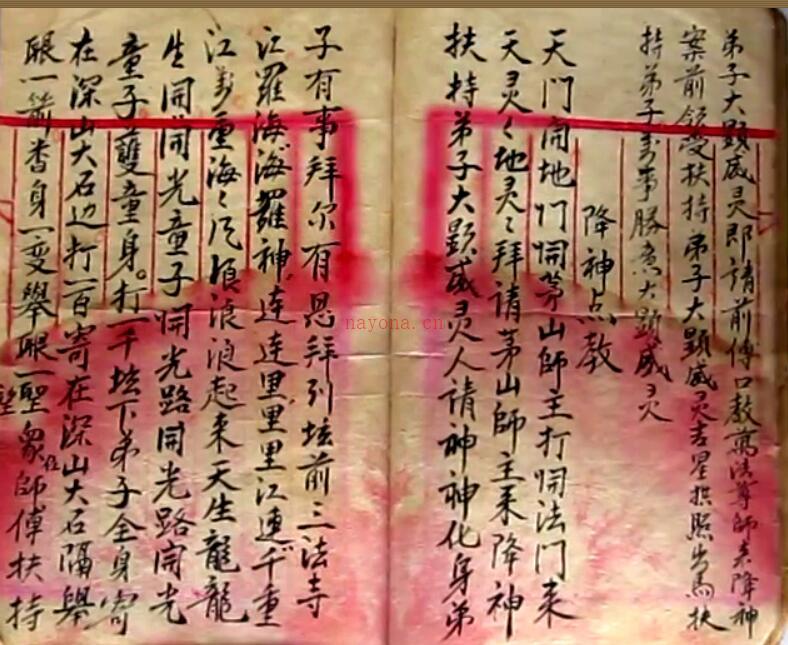 弟子大顕威灵即請前傳口教萬法尊師来降神
案前領受扶持弟子大顕威灵吉星拱照出馬扶
持弟子万事勝意大顕威灵
降神点教
天門開地门開茅山師主打開法门来
天灵々地灵々拜請茅山師主来降神
扶持弟子大顕威灵人請神神化身弟
子有事拜尔有恩拜到坛前三法寺
江羅海海羅神連連里里里江連千重
江万重海々浪浪浪起来天生龍龍
生開開光童子開光路開光路開光
童子雙童身。打一千坛下弟子全身寄
在深山大石边打一百寄在深山大石隔舉
眼一箭杏身一变舉眼一聖衆在師傅扶持
nayona.cn